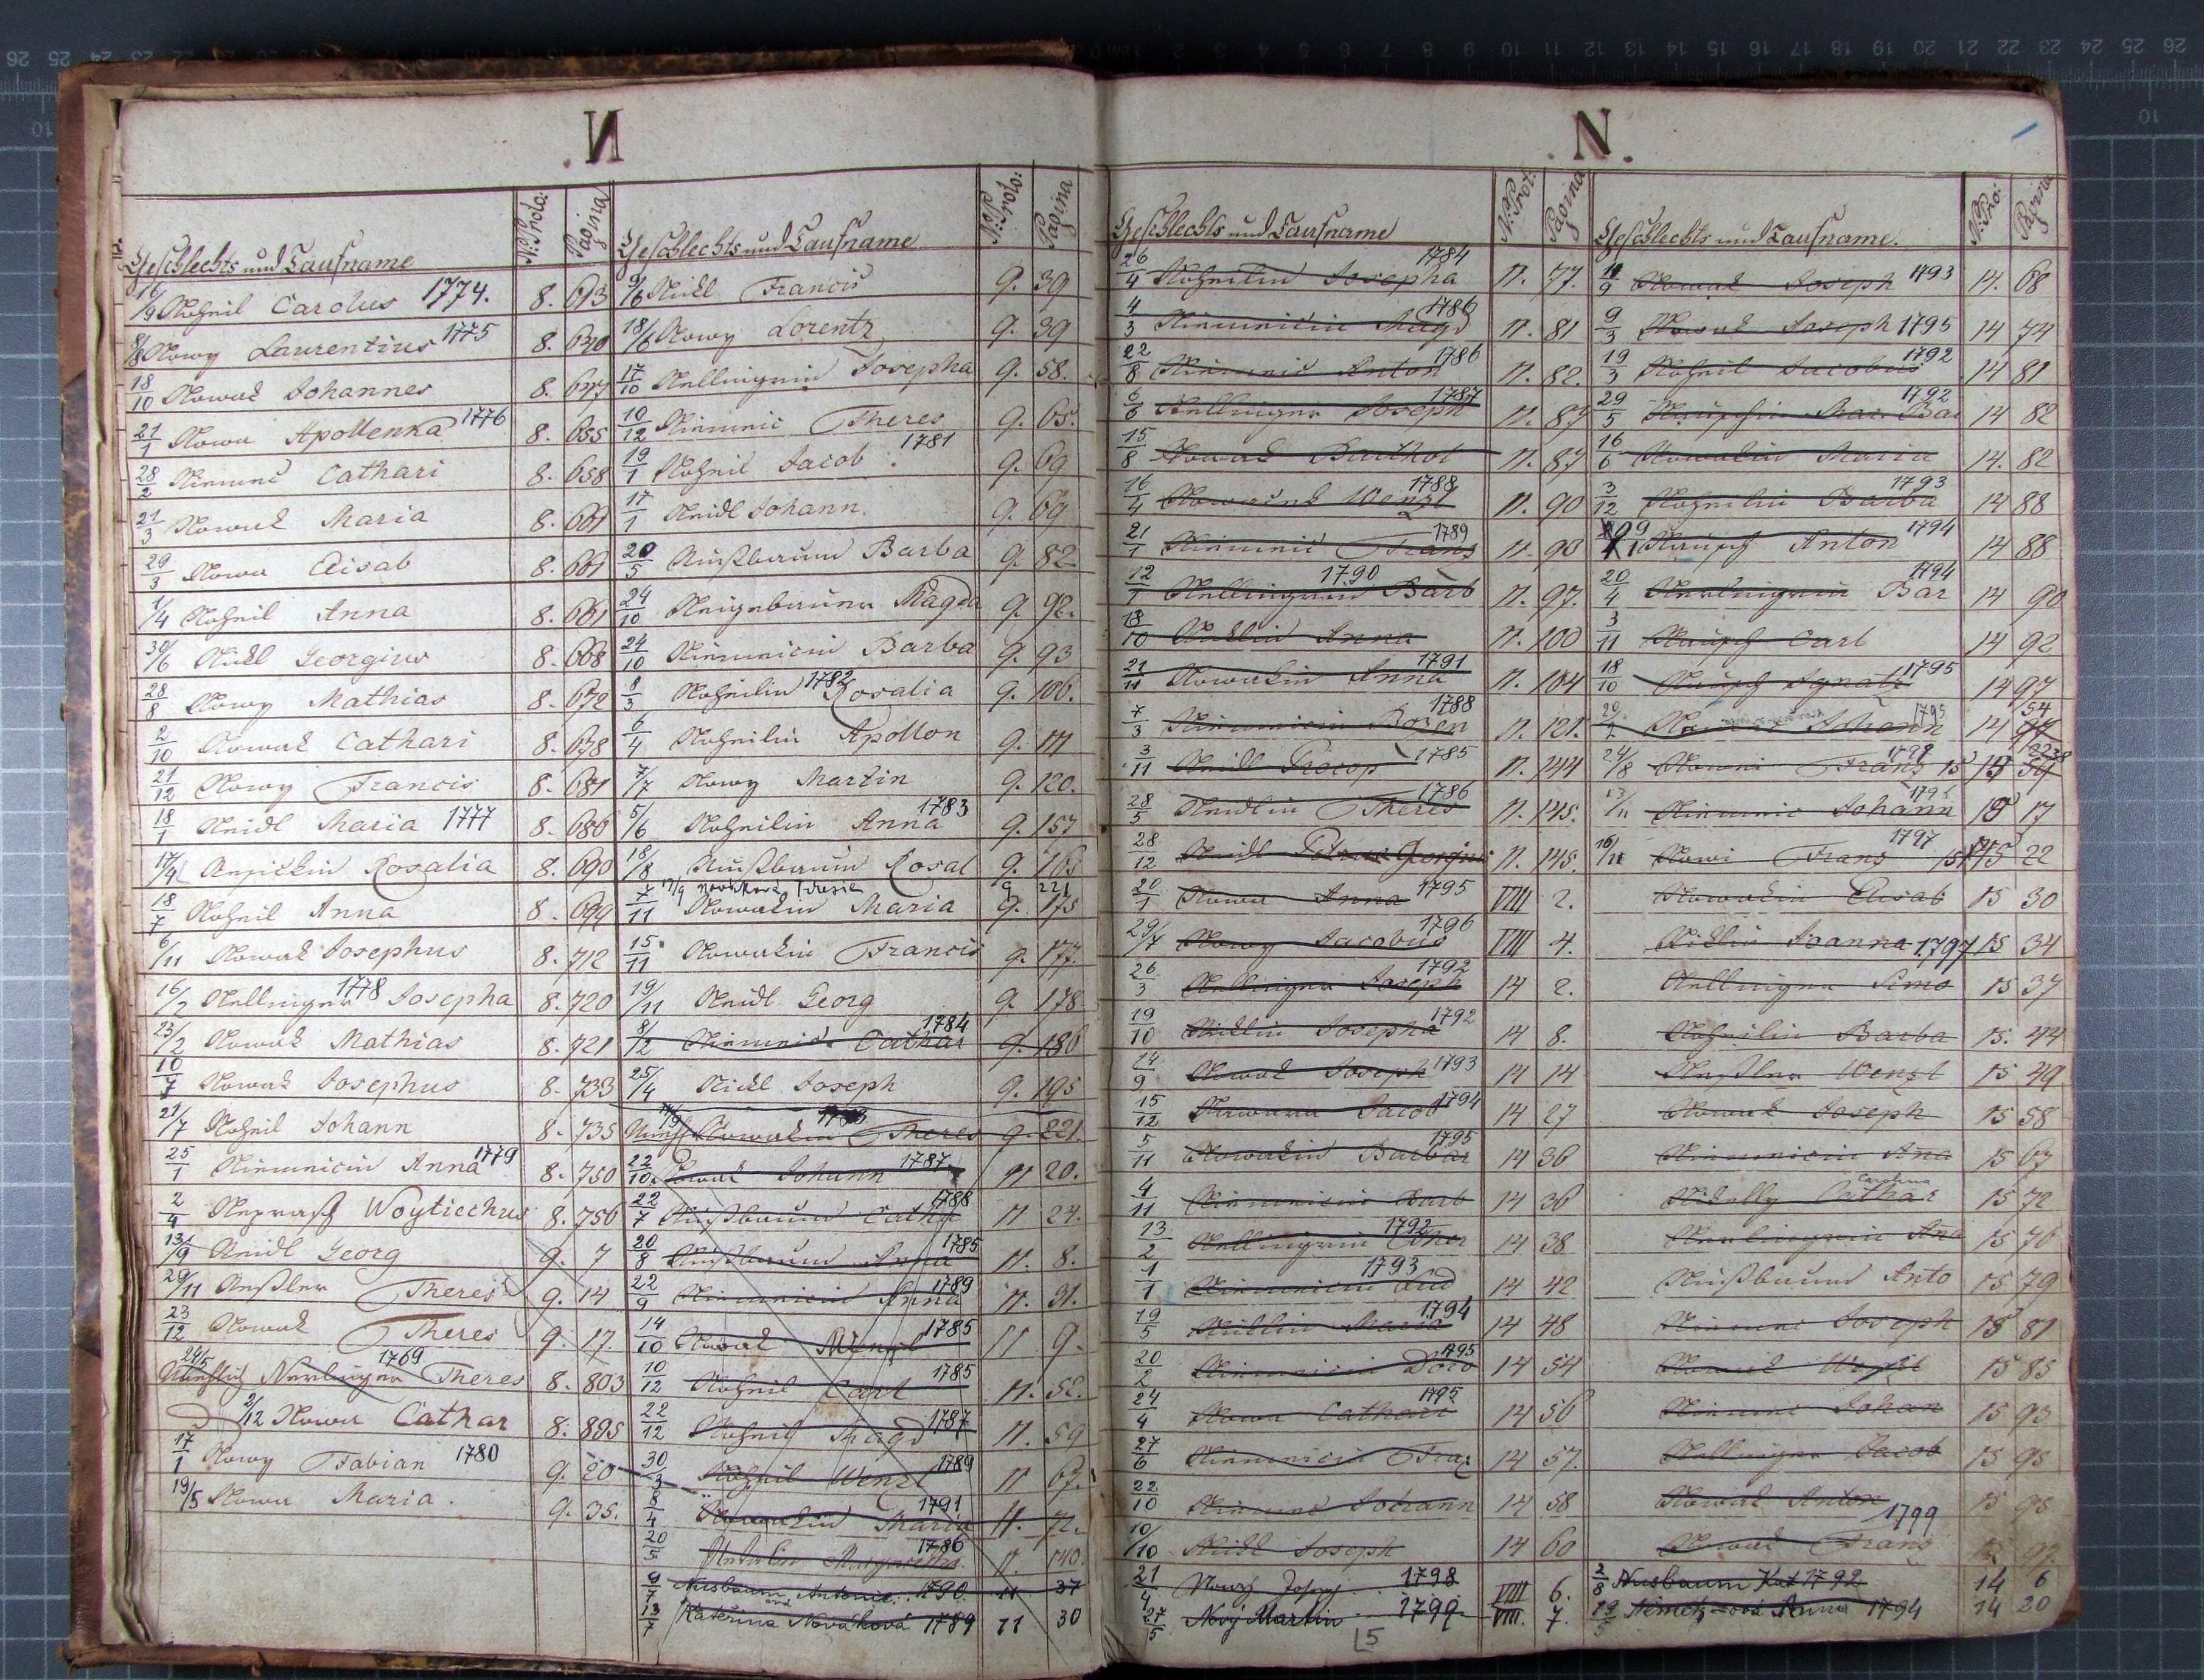 N.
Geschlechts und Taufname N: Proto: Pagina
16/9 Noheil Carolus 1774. 8. 693
8/8 Nowy Laurentius 1775 8. 640
18/10 Nowak Johannes 8. 647
21/1 Nowa Apollenka 1776 8. 655
28/2 Cathari 8. 658
21/3 Nowak Maria 8. 661
29/3 Nowa Elisab 8. 661
1/4 Noheil Anna 8. 661
30/6 Nickl Georgius 8. 668
28/8 Nowy Mathias 8. 672
2/10 Nowak Cathari 8. 678
21/12 Nowy Francis 8. 681
18/1 Neidl Maria 1777 8. 686
17/4 Rosalia 8. 690
18/7 Noheil Anna 8. 699
6/11 Nowak Josephus 8. 712
16/2 Nellinger 1778 Josepha 8. 720
23/2 Nowak Mathias 8. 721
10/7 Nowak Josephus 8. 733
21/7 Noheil Johann 8. 735
25/1 Niemecin Anna 1779 8. 750
2/4 Neprasch Woytiechus 8. 756
13/9 Neidl Georg 9. 7
29/11 Neßler Theres 9. 14
23/12 Nowak Theres 9. 17.
24/5 Nerlinger 1769 Theres 8. 803
2/12 Nowa Cathar 8. 895
17/1 Nowy Fabian 1780 9. 20
19/5 Nowa Maria. 9. 35.
Geschlechts und Taufname N: Proto: Pagina
9/6 Nickl Francis 9. 39
18/6 Nowy Lorentz 9. 39
17/10 Nellingrin Josepha 9. 58.
10/12 Niemec Theres 9. 65.
19/1 Noheil Jacob. 1781 9. 69
17/1 Neidl Johann. 9. 69
20/5 Nußbaum Barba 9. 82
24/10 Neugebauer Magda 9. 92.
24/10 Niemecin Barba 9. 93
8/3 Noheilin 1782 Rosalia 9. 106.
6/4 Noheilin Apollon 9. 111
7/7 Nowy Martin 9. 120.
5/6 Noheilin Anna 1783 9. 157
18/8 Nußbaum Rosal 9. 165
17/9 Nováková Terezie 9 221
7/11 Nowakin Maria 9. 175
15/11 Nowakin Francis 9. 177.
19/11 Neidl Georg 9. 178
8/2 Niemecin Cathar 1784 9. 186
25/4 Nickl Joseph 9. 195
Nowakin Theres 9. 221.
22/10 Nowak Johann 1787 11 20.
22/7 Nußbaum Catha 1788 11 24.
20/8 Nußbaum Anna 1785 11. 8.
22/9 Niemecin Anna 1789 11. 31.
14/10 Nowak Wenzl 1785 11 9.
10/12 Noheil Carl 1785 11. 52.
22/12 Noheil Magd 1787 11. 59
30/3 Noheil Wenzl 1789 11 67.
8/4 Nowakin Maria 1791 11. 72.
20/5 Margaretha 1786 11. 140.
9/7 Nusbaum Antonie 1790 11 37
13/7 Kateřina Nováková 1789 11 30
N.
Geschlechts und Taufname N: Prot: Pagina
26/4 Noheilin Josepha 1784 11. 77.
4/3 Niemecin Magd 1786 11. 81
22/8 Niemec Anton 1786 11. 82.
6/6 Nellinger Joseph 1787 11. 87
15/8 Nowak Barthol 11. 87
16/4 Wenzl 1788 11. 90
21/1 Niemec Franz 1789 11. 93
12/1 Nellingrin 1790 Barb 11. 97.
18/10 Nicklin Anna 11. 100
21/11 Nowakin Anna 1791 11. 104
7/3 Niemecin Rosen 1788 11. 121.
3/11 Neidl Procop 1785 11. 144
28/5 Neidlin Theres 1786 11. 145.
28/12 Neidl Georgius 11. 145.
20/1 Nowa Anna 1795 VIII 2.
29/7 Nowy Jacobus 1796 VIII 4.
26/3 Nellinger Joseph 1792 14 2.
19/10 Nicklin Josepha 1792 14 8.
14/9 Nowak Joseph 1793 14 14
15/12 Jacob 1794 14 27
5/11 Nowakin Barbar 1795 14 36
4/11 Niemecin Barb 14 36
13/2 Nellingrin Ther 1792 14 38
1/1 Niemecin Lud 1793 14 42
19/5 Nicklin Maria 1794 14 48
20/2 Niemecin Doro 1795 14 54
24/4 Nowa Cathari 1795 14 56
27/6 Niemecin Fra: 14 57.
22/10 Niemec Johann 14 58
10/10 Nickl Joseph 14 60
21/4 Nowý Josef 1798 VIII 6.
27/5 Nový Martin 1799 VIII. 7.
Geschlechts und Taufname. N: Pro: Pagina
11/9 Nowak Joseph 1793 14. 68
9/3 Nowak Joseph 1795 14 74
19/3 Noheil Jacobus 1792 14 81
29/5 Bar 1792 14 82
16/6 Nowakin Maria 14. 82
3/12 Noheilin Barba 1793 14 88
Anton 1794 14 88
20/4 Nerlingrin Bar 1794 14 90
3/11 Carl 14 92
18/10 Ignatz 1795 14 97
Johann 1795 14 54
24/8 Nowi Franz 15
13/11 Niemec Johann 15 17
16/11 Nowi Franz 1797 15 22
Nowakin Elisab 15 30
Nicklin Joanna 1797 15 34
Nellinger Simo 15 37
Noheilin Barba 15. 44
Neßler Wenzl 15 49
Nowak Joseph 15 58
Niemecin Ana 15 67
Cathar Carolina 15 72
Nerlingrin Ana 15 76
Nußbaum Anto 15 79
Niemec Joseph 15 81
Nowak Wenzl 15 85
Niemec Johan 15 93
Nellinger Jacob 15 95
Nowak Anton 15 98
Nowak Franz 1799 15 97
2/8 Nusbaum Kat 1792 14 6
Němetzová Anna 1794 14 20
L5